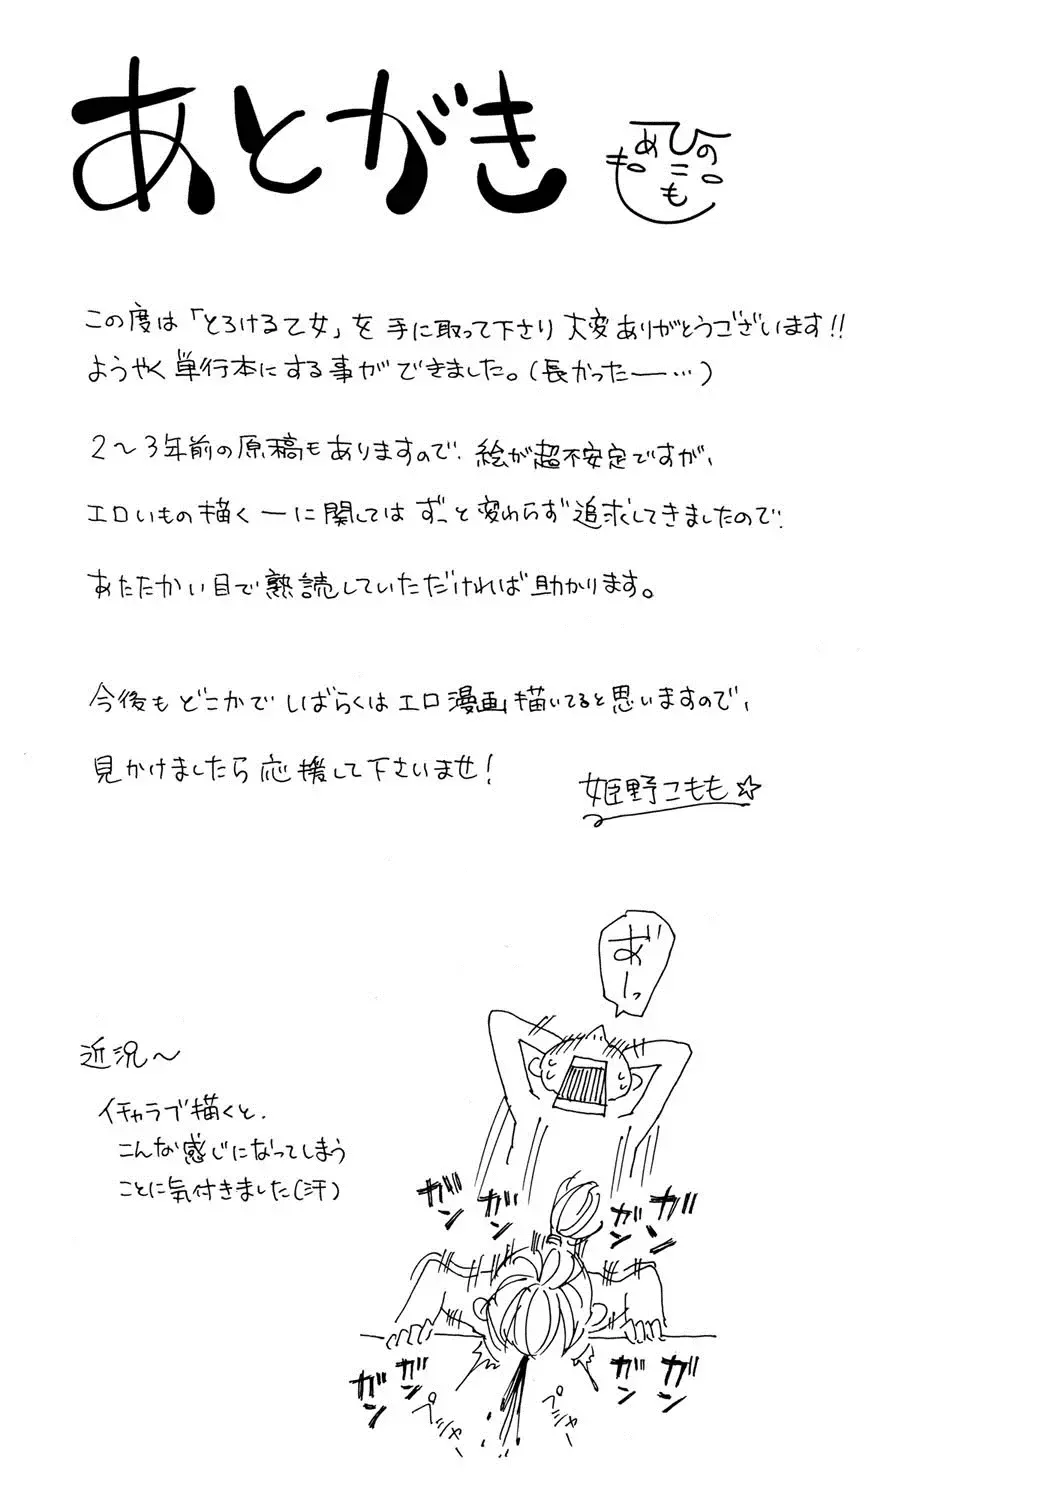 あとがき
ひめの
こもも
この度は「とろける乙女」を手に取って下さり大変ありがとうございます!!
ようやく単行本にする事ができました。(長かったー…)
2〜3年前の原稿もありますので、絵が超不安定ですが、
エロいもの描くーに関してはずっと変わらず追求してきましたので、
あたたかい目で熟読していただければ助かります。
今後もどこかでしばらくはエロ漫画描いてると思いますので、
見かけましたら応援して下さいませ!
姫野こもも☆
あ゛ーっ
近況〜
イチャラブ描くと、
こんな感じになってしまう
ことに気付きました(汗)
ガン
ガン
ガン
ガン
ガン
ガン
ガン
ガン
ペシャー
ペシャー